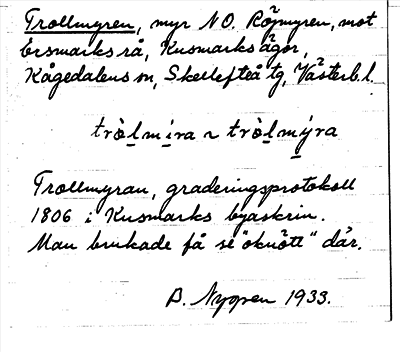 Trollmyren, myr N O. Röjmyren, mot
Ersmarks rå, Kusmarks ägor,
Kågedalens m, Skellefteå tg, Västerb. l.
tròl̲mi̲ra ~ tròl̲mý̲ra
Trollmyran, graderingsprotokoll
1806 i Kusmarks byaskrin.
Man brukade få se "oknött" där.
B. Nygren 1933.